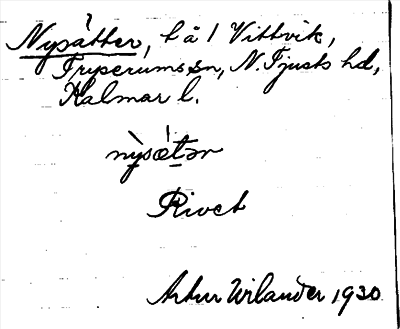 Nysätter, t å 1 Vittvik,
Tryserums sn, N. Tjusts hd,
Kalmar l.
nỳsætər
Rivet
Artur Wilander 1930